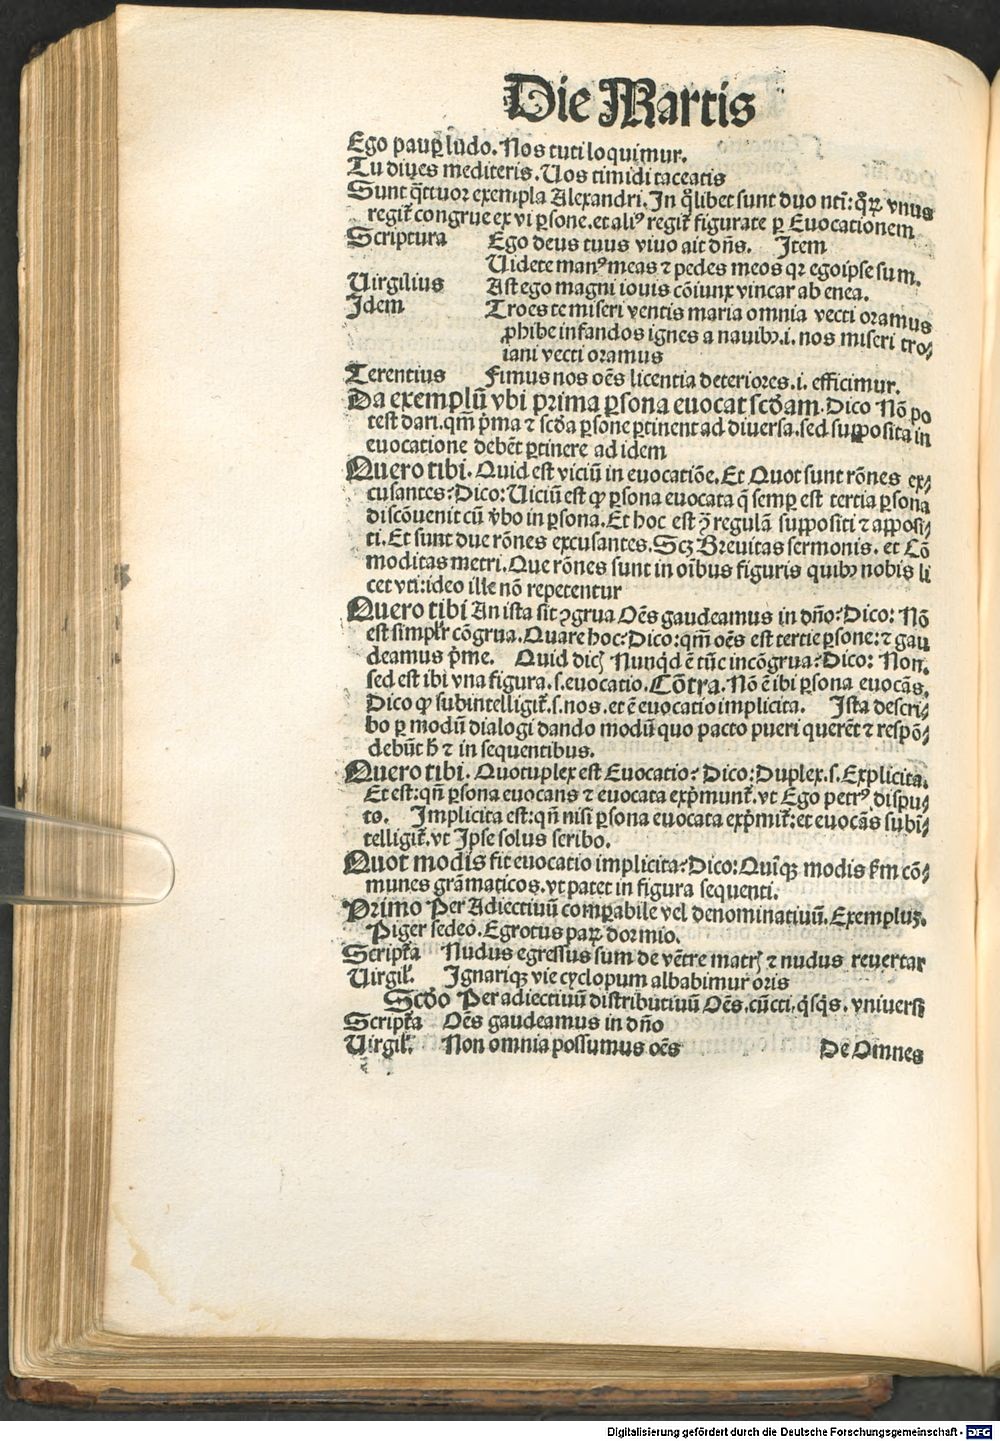 Die Martis
Ego paup̲ ludo. Nos tuti loquimur.
Tu diues mediteris. Uos timidi taceatis
Sunt q̄ttuor exempla Alexandri. In qͦlibet sunt duo ntī: qͦꝝ vnus
regiẗ congrue ex vi ꝑsone. et aliꝰ regiẗ figurate ꝑ Euocationem
Scriptura Ego deus tuus viuo ait dn̄s. Item
Uidete manꝰ meas ⁊ pedes meos qꝛ ego ipse sum.
Virgilius Ast ego magni iouis cōiunx vincar ab enea.
Idem Troes te miseri ventis maria omnia vecti oramus
ꝓhibe infandos ignes a nauibꝰ .i. nos miseri tro⸗
iani vecti oramus
Terentius Fimus nos oēs licentia deteriores .i. efficimur.
Da exemplū vbi prima ꝑsona euocat scd̄am. Dico Nō po
test dari. qm̄ p̄ma ⁊ scd̄a ꝑsone ꝑtinent ad diuersa. sed supposita in
euocatione debēt ꝑtinere ad idem
Quero tibi. Quid est viciū in euocatiōe. Et Quot sunt rōnes ex⸗
cusantes? Dico: Viciū est ꝙ ꝑsona euocata q̄ semꝑ est tertia ꝑsona
discōuenit cū v̄bo in ꝑsona. Et hoc est ꝯ̄ regulā suppositi ⁊ apposi⸗
ti. Et sunt due rōnes excusantes. Scꝫ Breuitas sermonis. et Cō
moditas metri. Que rōnes sunt in oībus figuris quibꝰ nobis li
cet vti: ideo ille nō repetentur
Quero tibi An ista sit ꝯgrua Oēs gaudeamus in dn̄o? Dico: Nō
est simplr̄ cōgrua. Quare hoc? Dico: qm̄ oēs est tertie ꝑsone: ⁊ gau
deamus p̄me. Quid dicꝭ Nunqͥd ē tūc incōgrua? Dico: Non.
sed est ibi vna figura .s. euocatio. Cōtra. Nō ē ibi ꝑsona euocās.
Dico ꝙ subintelligiẗ .s. nos. et ē euocatio implicita. Ista descri⸗
bo ꝑ modū dialogi dando modū quo pacto pueri querēt ⁊ respō⸗
debūt h̄ ⁊ in sequentibus.
Quero tibi. Quotuplex est Euocatio? Dico: Duplex .s. Explicita.
Et est: qn̄ ꝑsona euocans ⁊ euocata exp̄munẗ. vt Ego petrꝰ dispu⸗
to. Implicita est: qn̄ nisi ꝑsona euocata exp̄miẗ: et euocās subī⸗
telligiẗ. vt Ipse solus scribo.
Quot modīs fit euocatio implicita? Dico: Quīqꝫ modis ẜm cō⸗
munes grāmaticos. vt patet in figura sequenti.
Primo Per Adiectiuū comꝑabile vel denominatiuū. Exempluꝫ.
Piger sedeo. Egrotus paꝝ dormio.
Scriptͣa Nudus egressus sum de vētre matrꝭ ⁊ nudus reuertar
Virgil̓. Ignariqꝫ vie cyclopum allabimur oris
Scd̄o Per adiectiuū distributiuū Oēs. cūcti. qͥsqͥs. vniuersi
Scriptͣa Oēs gaudeamus in dn̄o
Virgil̓. Non omnia possumus oēs De Omnes
Digitalisierung gefördert durch die Deutsche Forschungsgemeinschaft - DFG